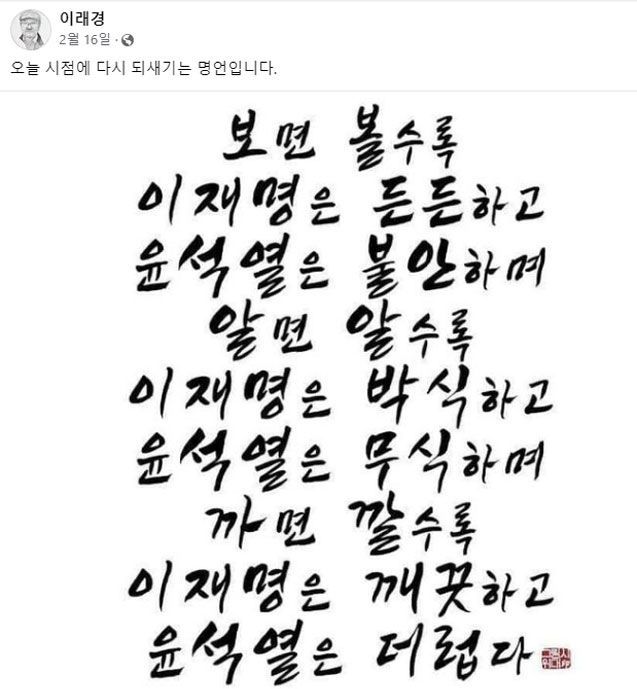 이래경
2월 16일 ·
오늘 시점에 다시 되새기는 명언입니다.
보면 볼수록
이재명은 든든하고
윤석열은 불안하며
알면 알수록
이재명은 박식하고
윤석열은 무식하며
까면 깔수록
이재명은 깨끗하고
윤석열은 더럽다